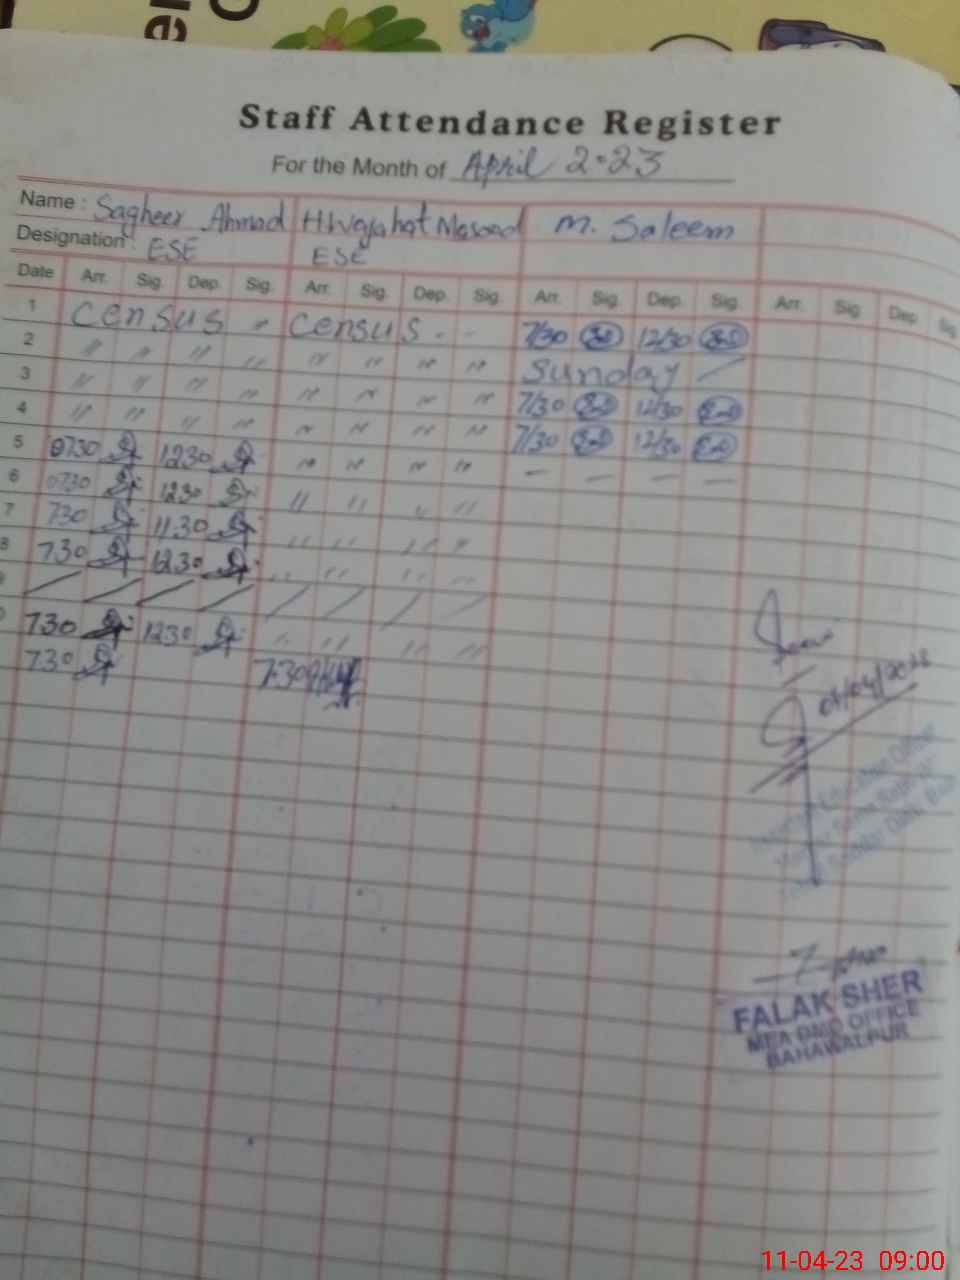 Staff Attendance Register
For the Month of April 2023
Name : Sagheer Ahmad H.Wajahat Masood M. Saleem
Designation : ESE ESE
Date Arr. Sig. Dep. Sig. Arr. Sig. Dep. Sig. Arr. Sig. Dep. Sig. Arr. Sig. Dep Sig
1 Census - Census - - 7/30 12/30
2 " " " " " " " " Sunday /
3 " " " " " " " " 7/30 12/30
4 " " " " " " " " 7/30 12/30
5 0730 1230 " " " " - - - -
6 0730 1230 " " " "
7 730 11.30 " " " "
8 7.30 12.30 " " " "
/ / / / / / / /
730 1230 " " " "
7.30 7.30
FALAK SHER
MEA DMO OFFICE
BAHAWALPUR
11-04-23 09:00